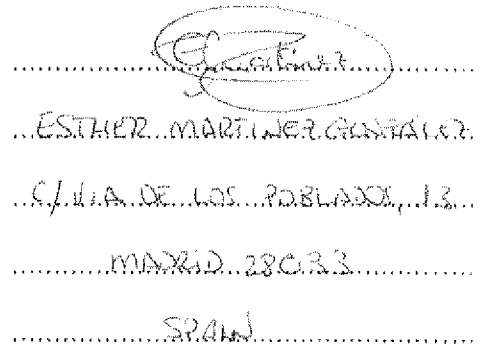 EMartinez
ESTHER MARTINEZ GONZÁLEZ
C/ VIA DE LOS POBLADOS, 13
MADRID 28033
SPAIN